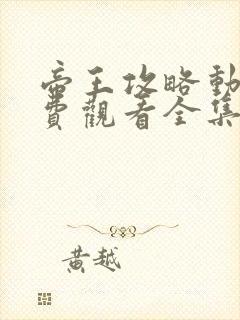 帝王攻略動
費觀看全集
黃越